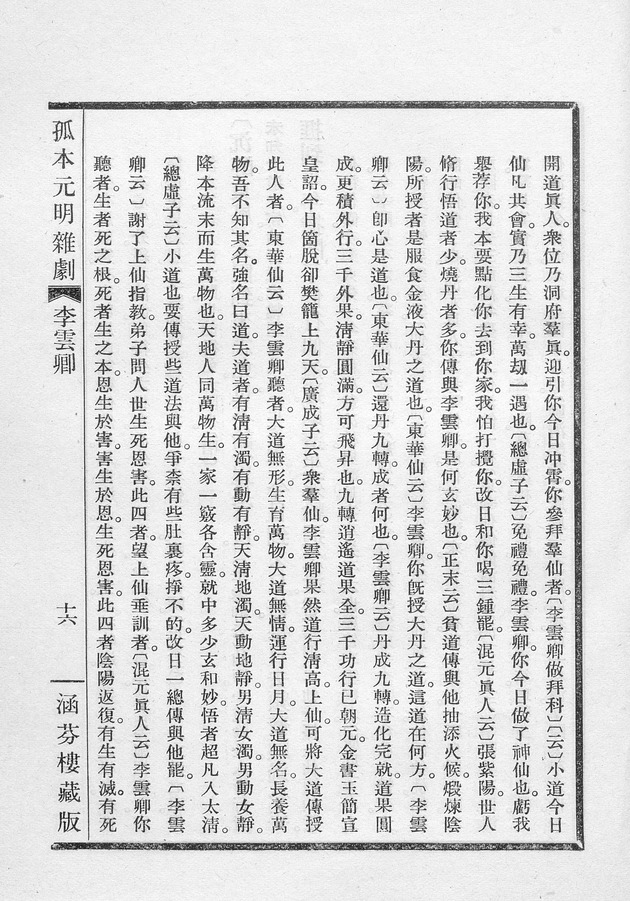 開道眞人。衆位乃洞府羣眞。迎引你今日冲霄。你參拜羣仙者。〔李雲卿做拜科〕〔云〕小道今日
仙凡共會。實乃三生有幸。萬刼一遇也。〔總虛子云〕免禮免禮。李雲卿。你今日做了神仙也。虧我
舉荐你。我本要點化你去到你家。我怕打攪你。改日和你喝三鍾罷。〔混元眞人云〕張紫陽。世人
脩行悟道者少。燒丹者多。你傳與李雲卿。是何玄妙也。〔正末云〕貧道傳與他抽添火候。煅煉陰
陽。所授者是服食金液大丹之道也。〔東華仙云〕李雲卿。你旣授大丹之道。這道在何方。〔李雲
卿云〕卽心是道也。〔東華仙云〕還丹九轉。成者何也。〔李雲卿云〕丹成九轉。造化完就。道果圓
成。更積外行。三千外果。淸靜圓滿。方可飛昇也。九轉逍遙道果全。三千功行已朝元。金書玉簡宣
皇詔。今日箇脫卻樊籠上九天。〔廣成子云〕衆羣仙。李雲卿果然道行淸高。上仙可將大道傳授
此人者。〔東華仙云〕李雲卿聽者。大道無形。生育萬物。大道無情。運行日月。大道無名。長養萬
物。吾不知其名。強名曰道。夫道者。有淸有濁。有動有靜。天淸地濁。天動地靜。男淸女濁。男動女靜。
降本流末而生萬物也。天地人同萬物生。一家一竅各含靈。就中多少玄和妙。悟者超凡入太淸。
〔總虛子云〕小道也要傳授些道法與他。爭柰有些肚裏疼。掙不的。改日一總傳與他罷。〔李雲
卿云〕謝了上仙指教。弟子問人世生死恩害。此四者。望上仙垂訓者。〔混元眞人云〕李雲卿你
聽者。生者死之根。死者生之本。恩生於害。害生於恩。生死恩害。此四者陰陽返復。有生有滅。有死
孤本元明雜劇　李雲卿　十六　涵芬樓藏版